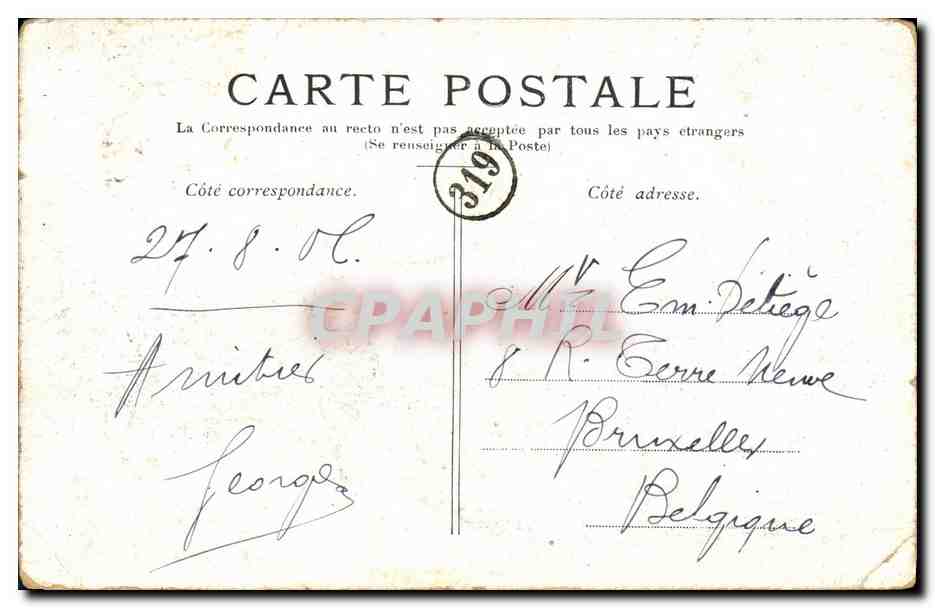 CARTE POSTALE
La Correspondance au recto n'est pas acceptée par tous les pays étrangers
(Se renseigner à la Poste)
319
Côté correspondance.
27.8.06.
Amitiés
Georges
Côté adresse.
Mr Em.
8 R. Terre Neuve
Bruxelles
Belgique
CPAPHIL